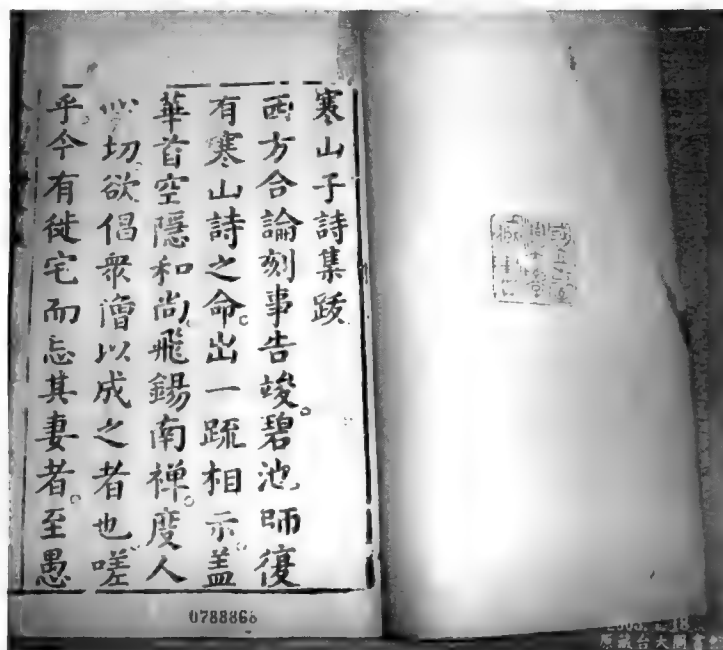 寒山子詩集跋
西方合論刻事告竣。碧池師復
有寒山詩之命。出一疏相示。蓋
華首空隱和尚飛錫南禪。度人
心切。欲倡眾僧以成之者也。嗟
乎。今有徙宅而忘其妻者。至愚
0788868
2005. 18
原藏台大圖書館